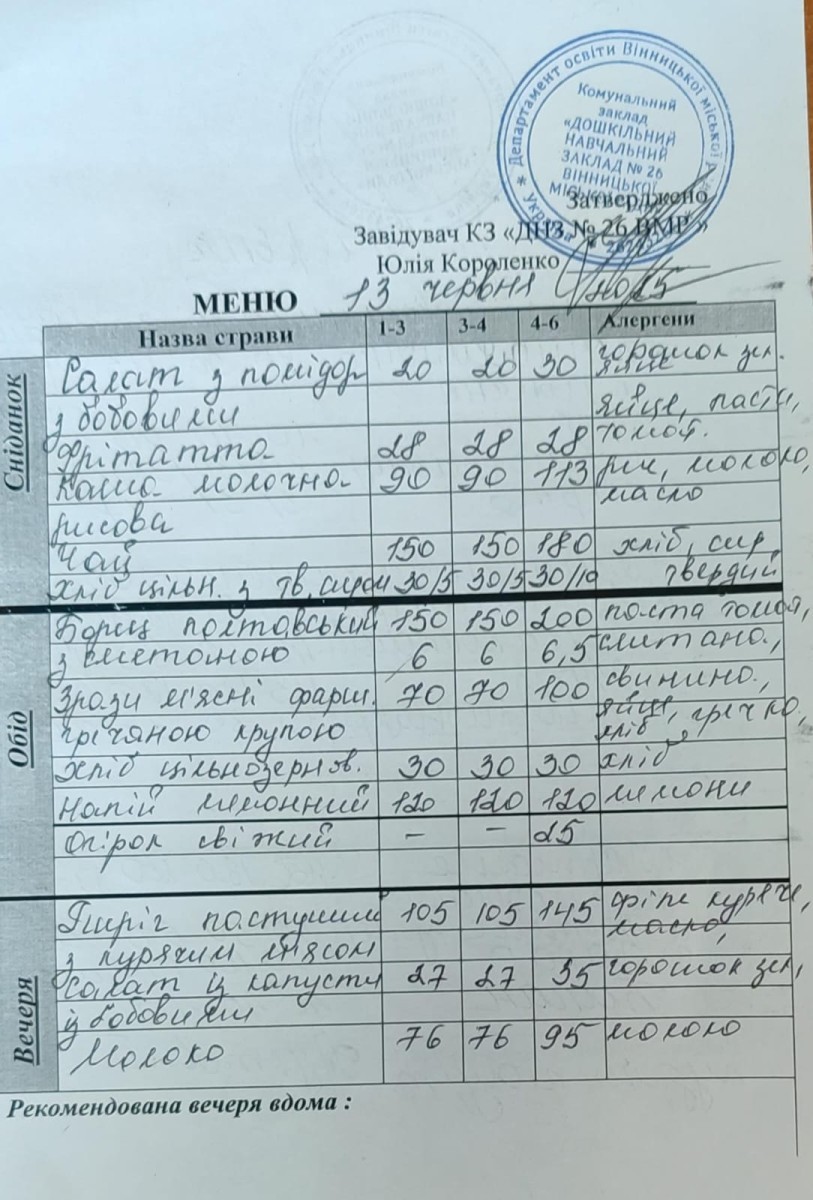 * Департамент освіти Вінницької міської ради * Україна
Комунальний
заклад
«ДОШКІЛЬНИЙ
НАВЧАЛЬНИЙ
ЗАКЛАД № 26
ВІННИЦЬКОЇ
Затверджено
Завідувач КЗ «ДНЗ № 26 ВМР»
Юлія Короленко
МЕНЮ 13 червня 2025
Назва страви 1-3 3-4 4-6 Алергени
Сніданок
Салат з помідор 20 20 30 горошок зел.
з бобовими яйце, паста
Фрітатта 28 28 28 томат.
Каша молочна 90 90 113 рис, молоко,
рисова масло
Чай 150 150 180 хліб, сир
Хліб цільн. з тв. сиром 30/5 30/5 30/10 твердий
Обід
Борщ полтавський 150 150 200 паста томат,
з сметаною 6 6 6,5 сметана,
Зрази м'ясні фарш. 70 70 100 свинина,
гречаною крупою яйце, гречка, хліб
Хліб цільнозернов. 30 30 30 хліб
Напій лимонний 120 120 120 лимони
Огірок свіжий – – 25
Вечеря
Пиріг пастуший 105 105 145 філе куряче,
з курячим м'ясом масло,
Салат із капусти 27 27 35 горошок зел,
із бобовими
Молоко 76 76 95 молоко
Рекомендована вечеря вдома :